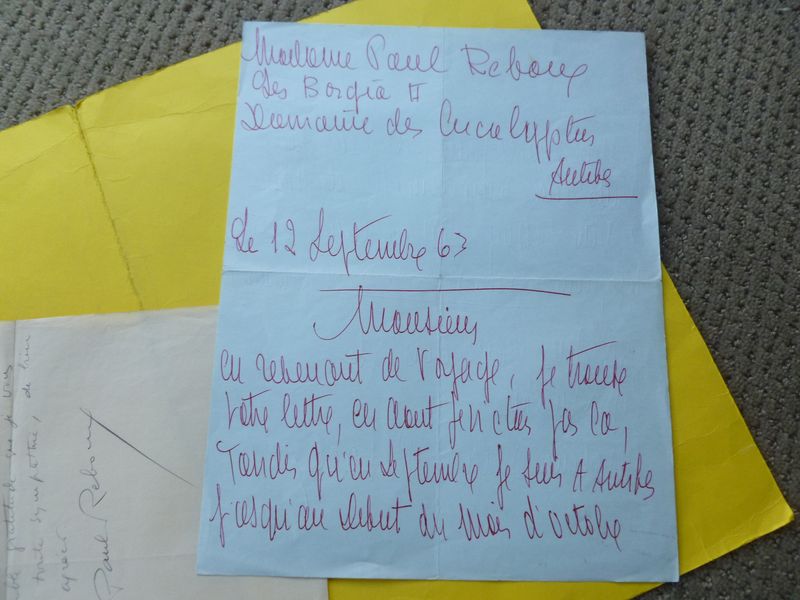 Madame Paul Reboux
Les Borgia II
Domaine des Eucalyptus
Antibes
Le 12 Septembre 63
Monsieur
en revenant de voyage, je trouve
votre lettre, en aout je n'étais pas là,
Tandis qu'en Septembre je suis A Antibes
jusqu'au debut du mois d'octobre
gratitude que je vous
toute sympathie, de bien
agréer
Paul Reboux